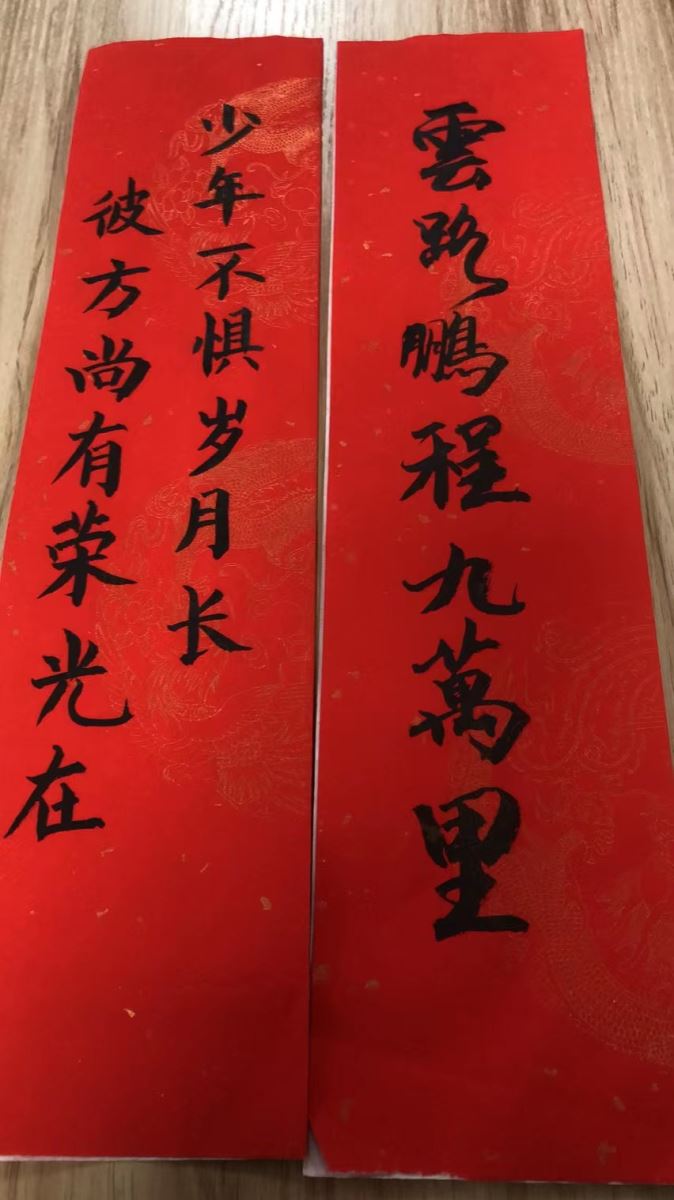 雲路鵬程九萬里
少年不惧岁月长
彼方尚有荣光在